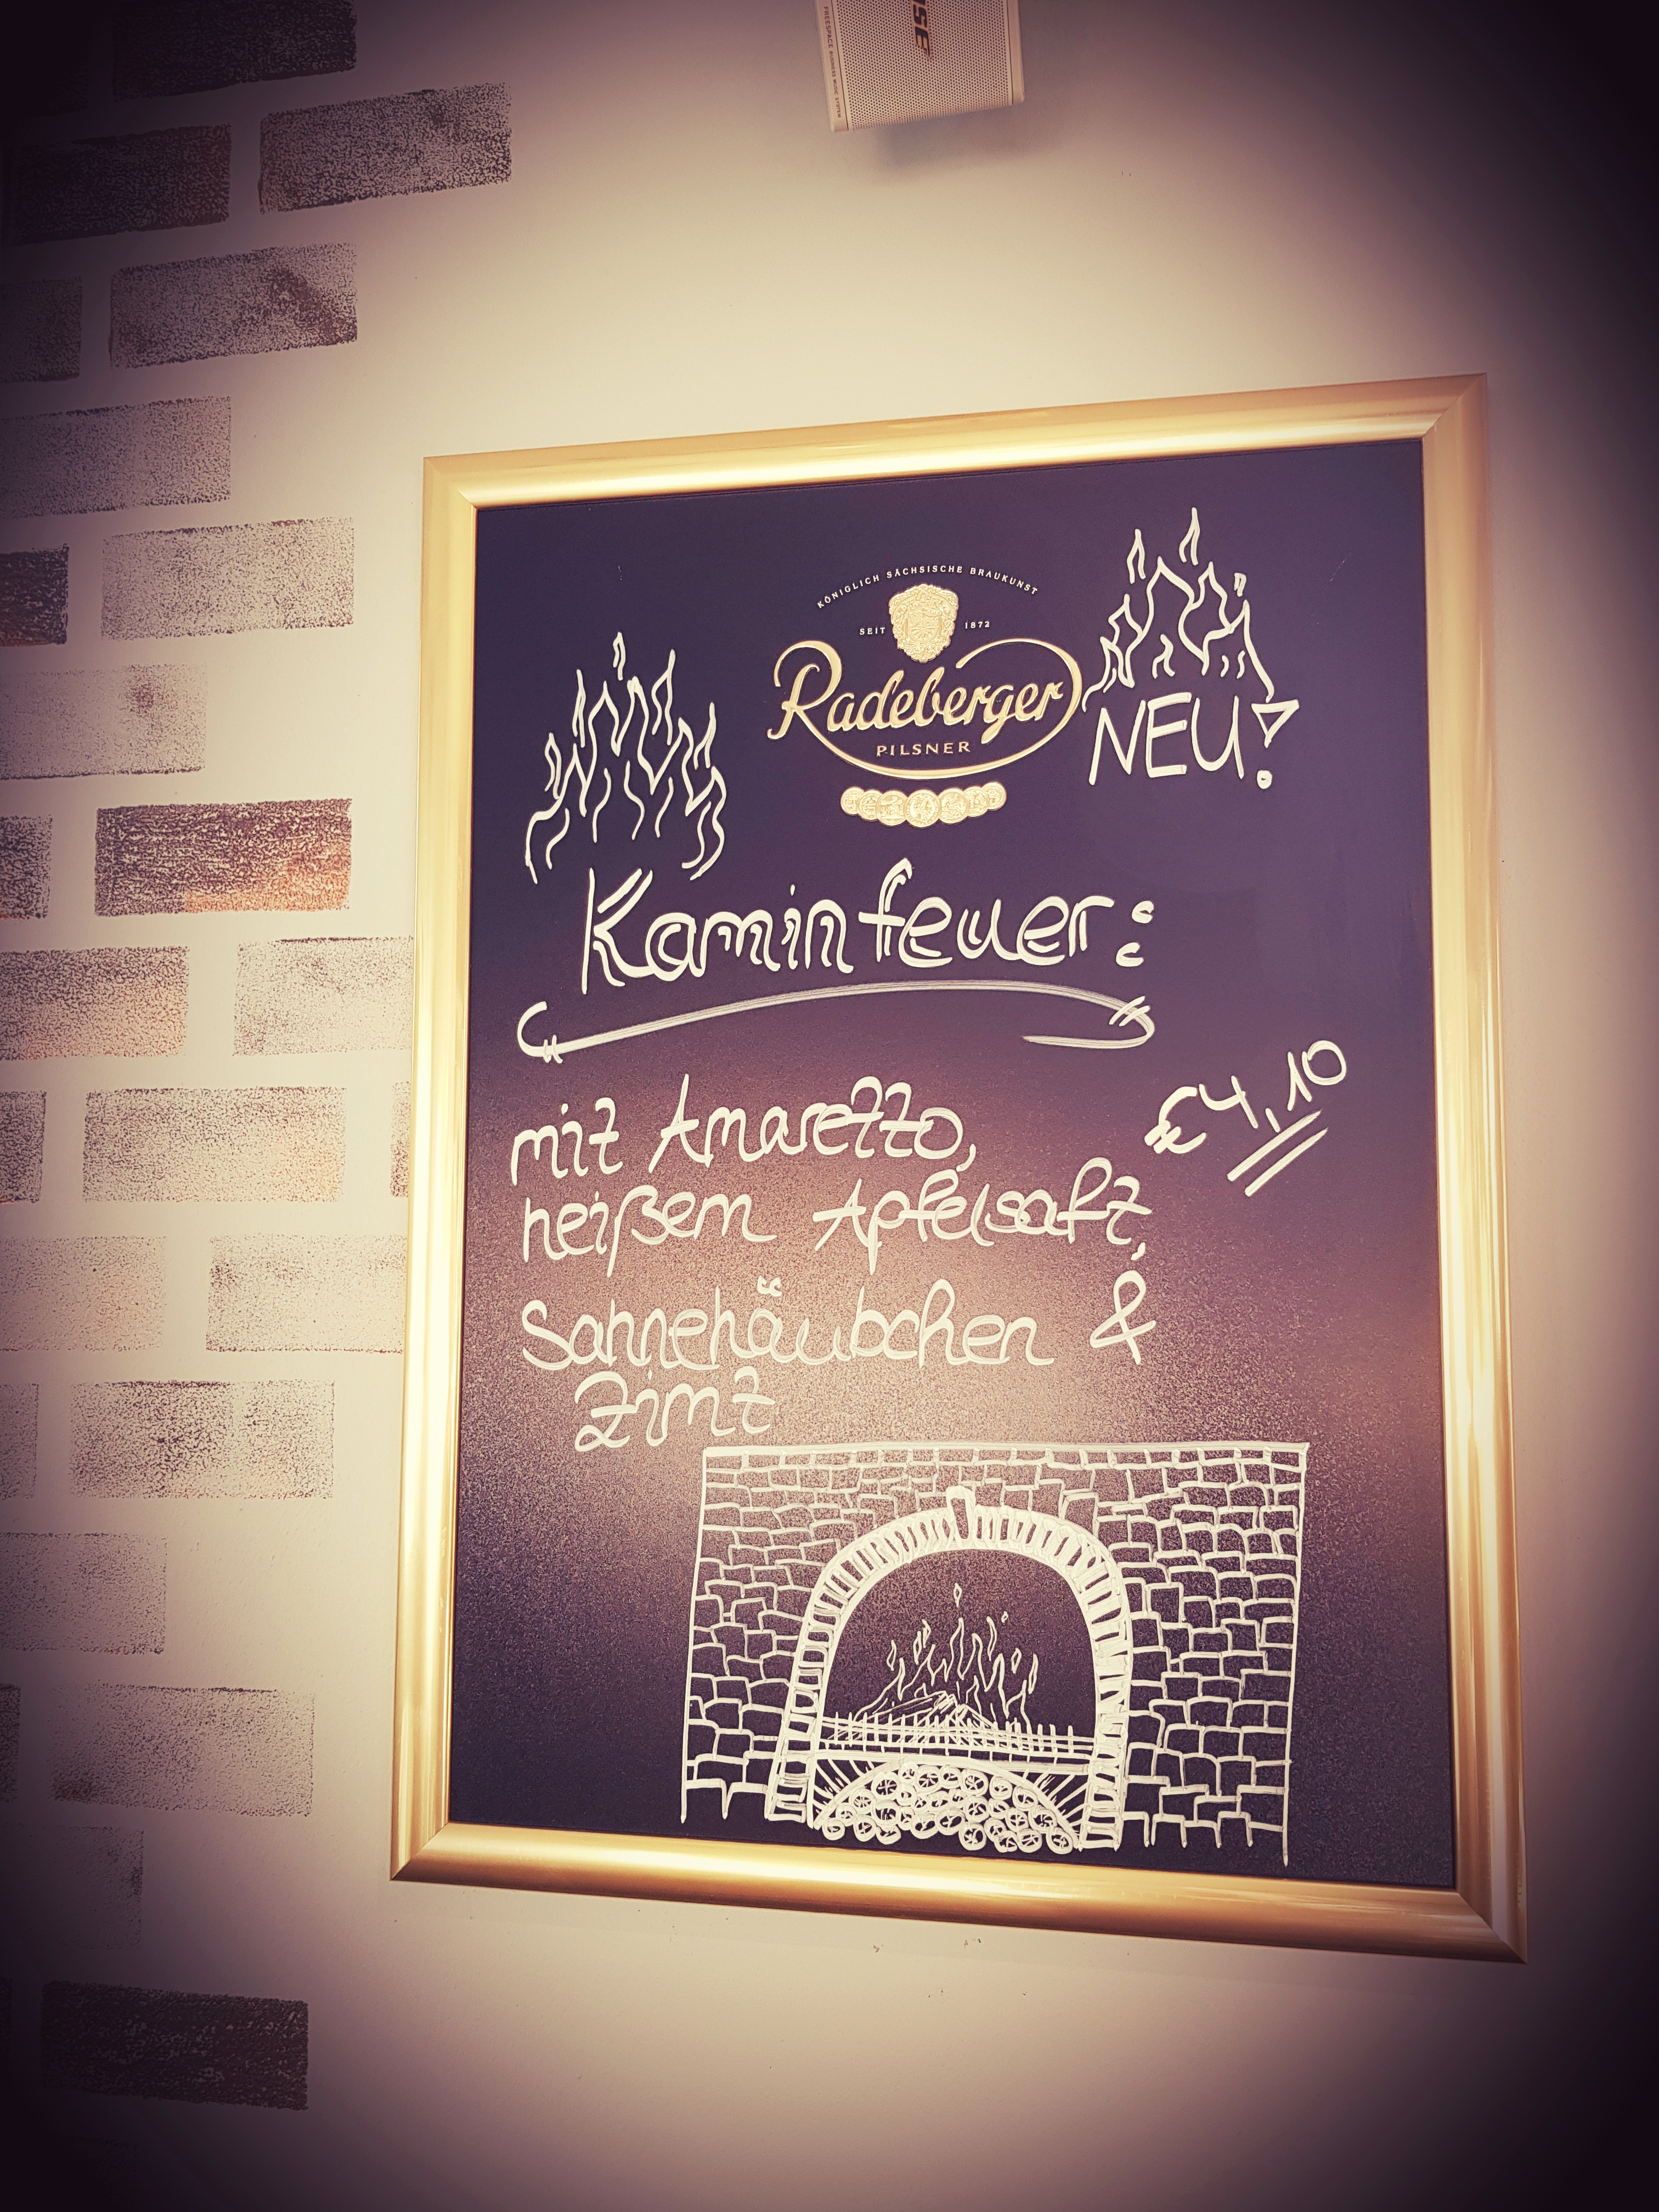 FREESPACE BUSINESS MUSIC SYSTEM
KÖNIGLICH SÄCHSISCHE BRAUKUNST
SEIT 1872
Radeberger
PILSNER
NEU!
Kaminfeuer:
mit Amaretto,
€ 4,10
heißem Apfelsaft,
Sahnehäubchen &
Zimt